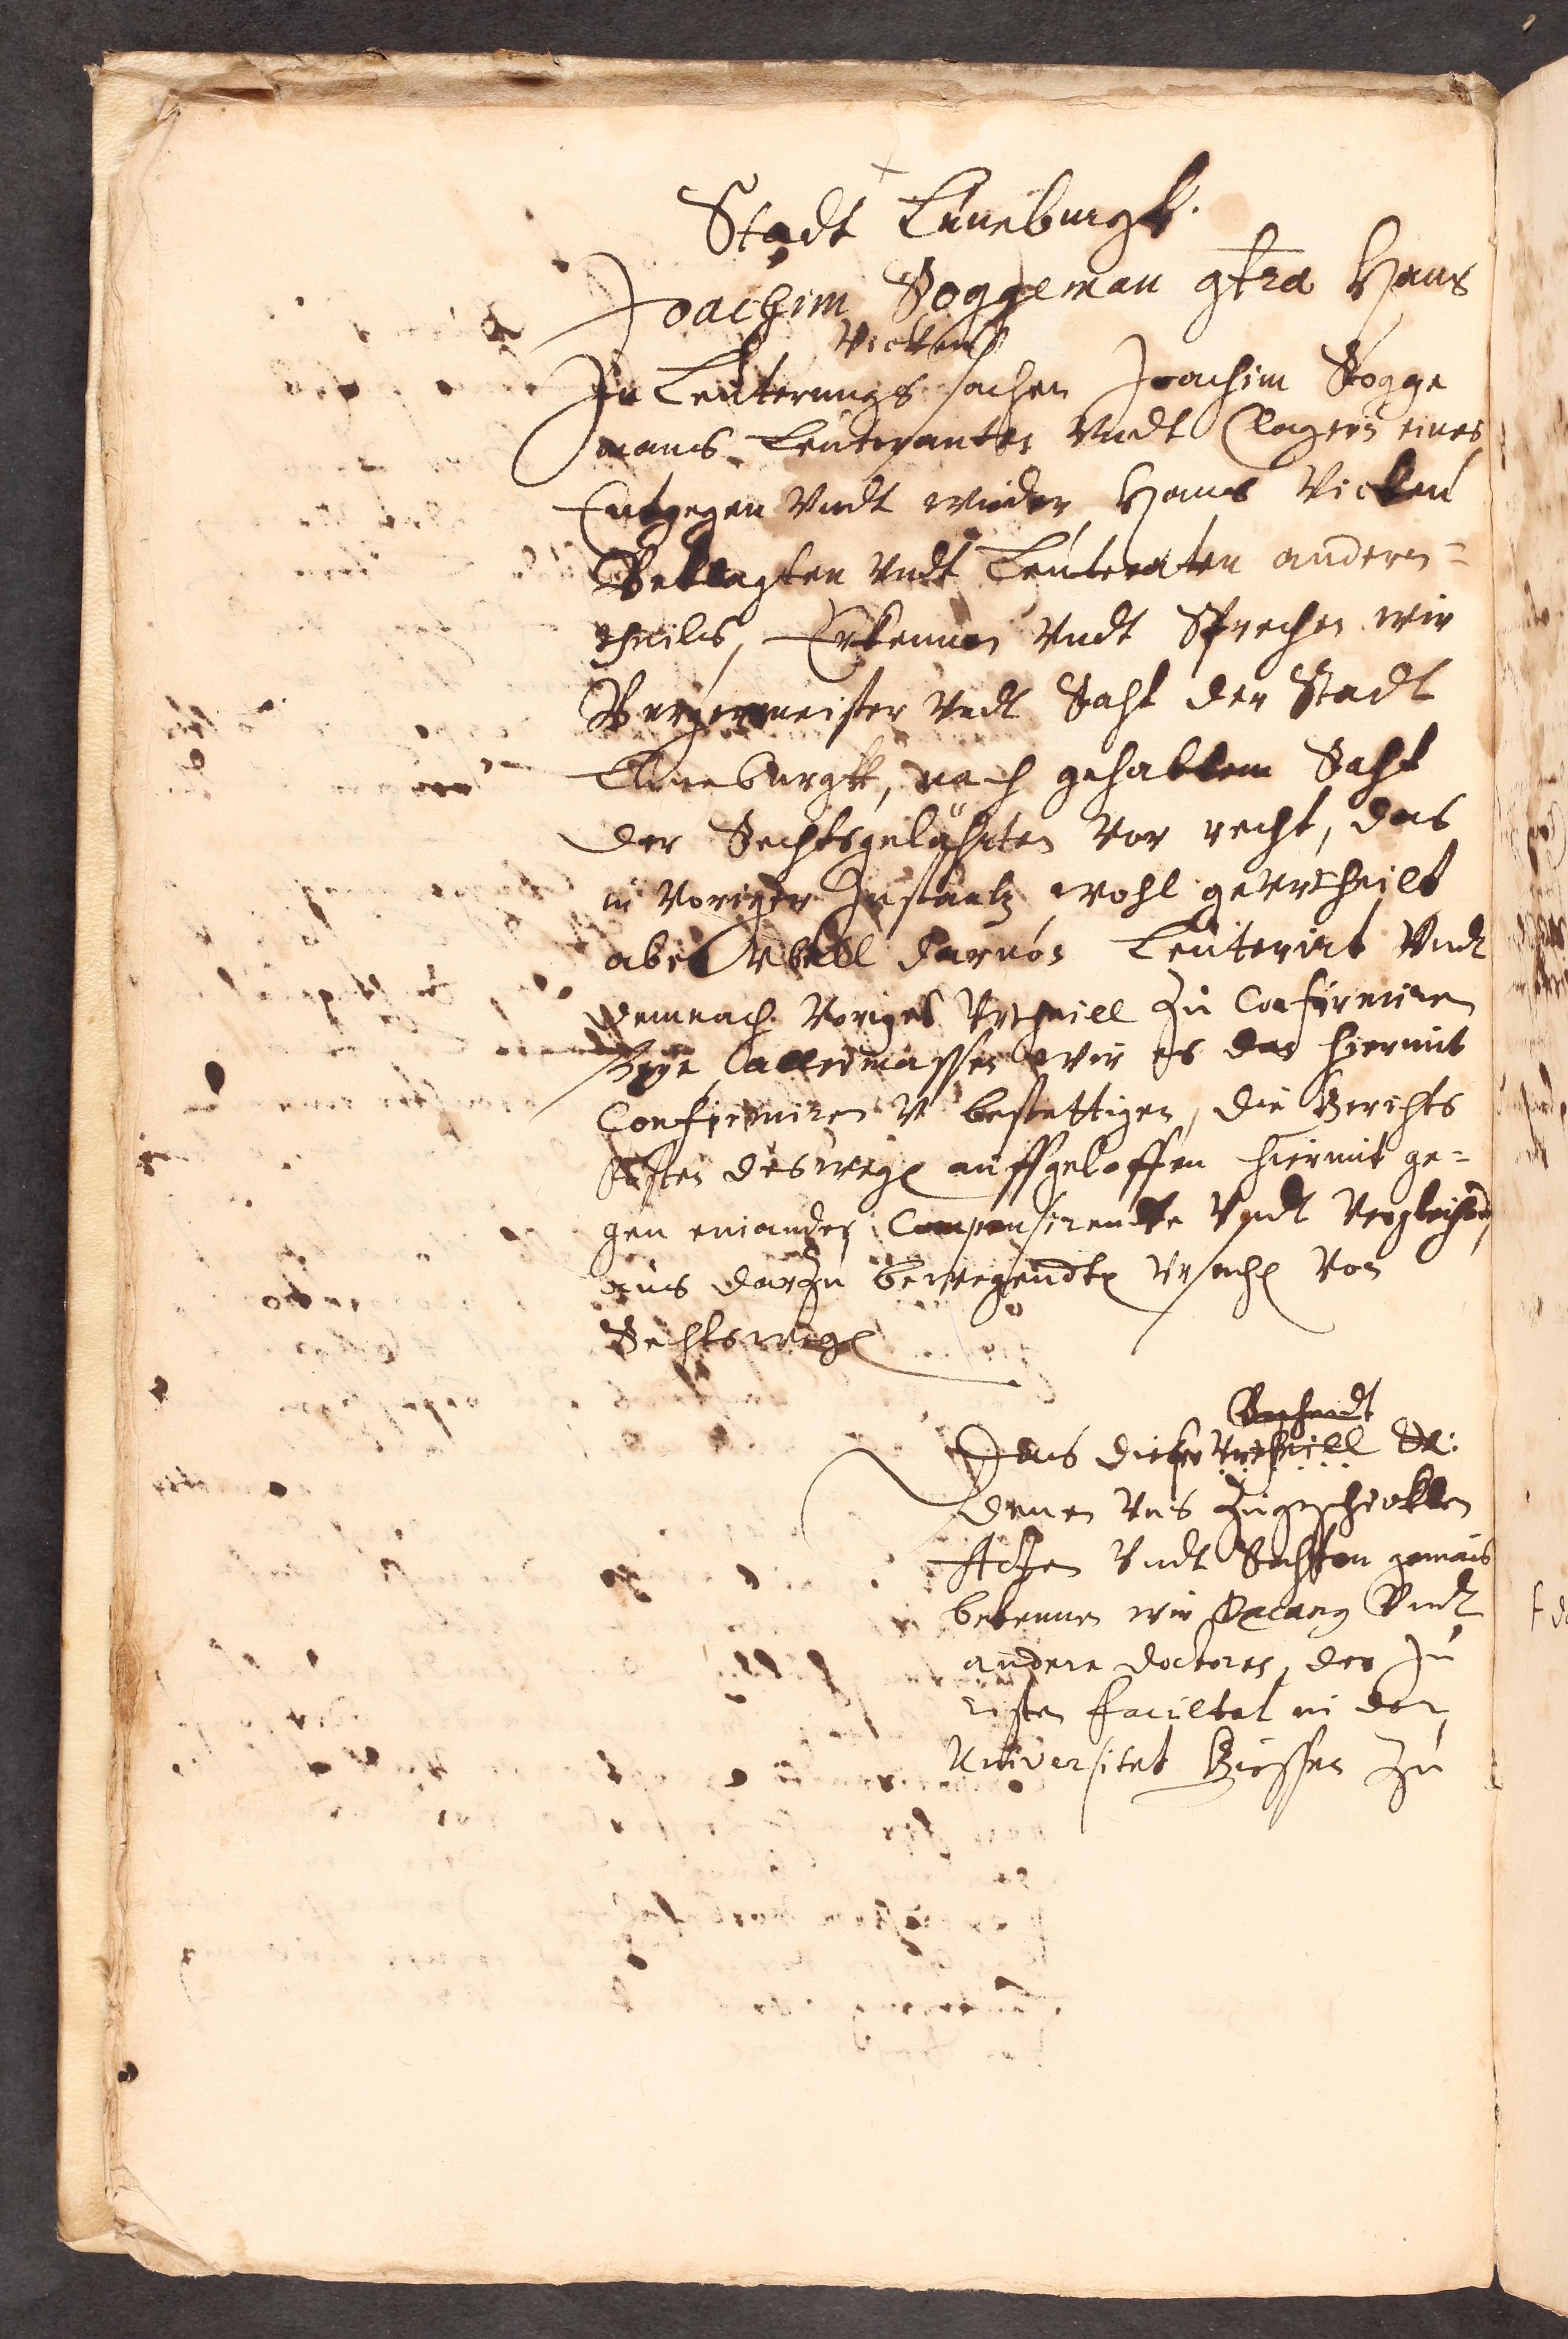 Stadt Luneburgk.
Joachim Roggeman cztra Hans
Vicken
In Leuterungs sachen Joachim Rogge
mans Leuteranten Vndt Clagern eines
Entgegen Vndt wieder Hans Vicken
Beklagten Vndt Leuteraten anderen=
theils, Erkennen Vndt Sprechen wir
Burgermeister Vndt Raht der Stadt
Luneburgk, nach gehabtem Raht
der Rechtsgelährten Vor recht, das
in Voriger Instantz wohl geurtheilt
aber Vbell daruon Leuterirt Vndt
demnach Voriges Vrtheill zu Confirmiren
seye allermassen wir es dan hiermit
Confirmiren V bestettigen, die Gerichts
Kosten deswegen auffgeloffen hiermit ge=
gen einander Compensirendte Vndt Vergleichendt,
aus darzu bewegendten Vrsachen Von
Rechtswegen
Bescheidt
Das dieses Vrtheill
denen Vns zugeschickten
Acten Vndt Rechten gemäs
bekennen wir Decang Vndt
andere doctores der Ju
risten facultet in der
Vniversitet Giessen zu